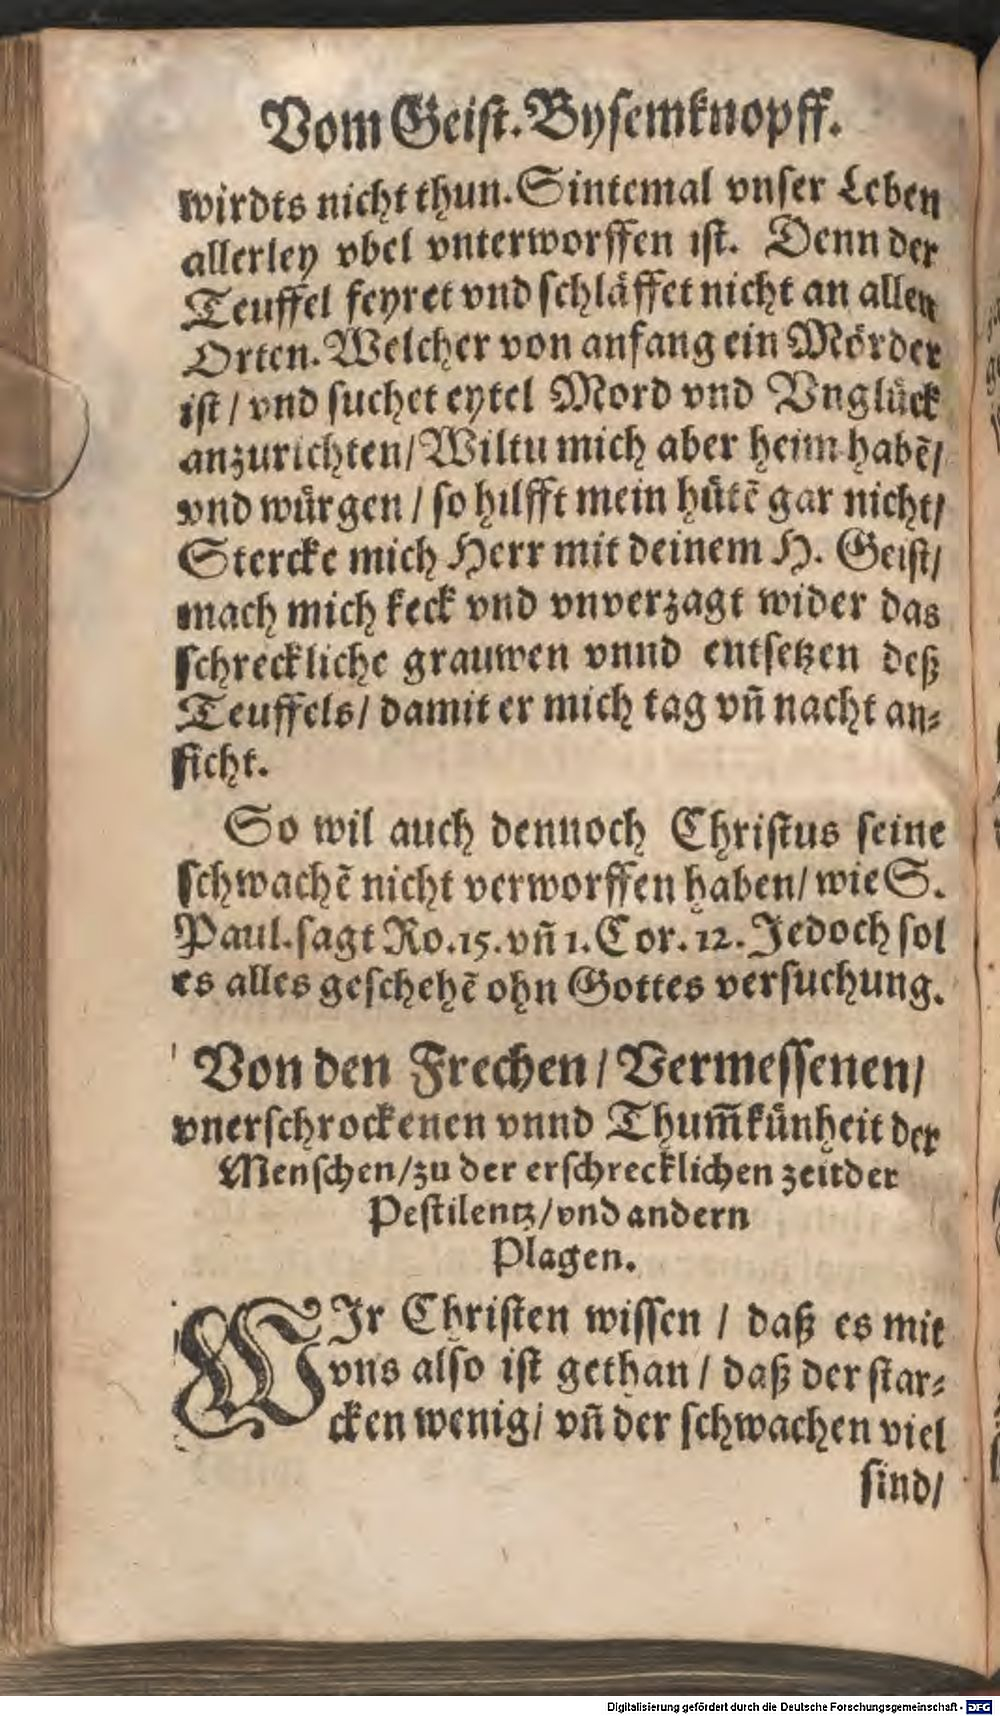 Vom Geist. Bysemknopff.
wirdts nicht thun. Sintemal vnser Leben
allerley vbel vnterworffen ist. Denn der
Teuffel feyret vnd schläffet nicht an allen
Orten. Welcher von anfang ein Mörder
ist / vnd suchet eytel Mord vnd Vnglück
anzurichten/ Wiltu mich aber heim habẽ/
vnd würgen / so hilfft mein hütẽ gar nicht/
Stercke mich Herr mit deinem H. Geist/
mach mich keck vnd vnverzagt wider das
schreckliche grauwen vnnd entsetzen deß
Teuffels/ damit er mich tag vñ nacht an⸗
ficht.
So wil auch dennoch Christus seine
schwachẽ nicht verworffen haben/ wie S.
Paul. sagt Ro. 15. vñ 1. Cor. 12. Jedoch sol
es alles geschehẽ ohn Gottes versuchung.
Von den Frechen / Vermessenen/
vnerschrockenen vnnd Thum̃künheit der
Menschen/ zu der erschrecklichen zeit der
Pestilentz/ vnd andern
Plagen.
WJr Christen wissen / daß es mit
vns also ist gethan / daß der star⸗
cken wenig/ vñ der schwachen viel
sind/
Digitalisierung gefördert durch die Deutsche Forschungsgemeinschaft - DFG